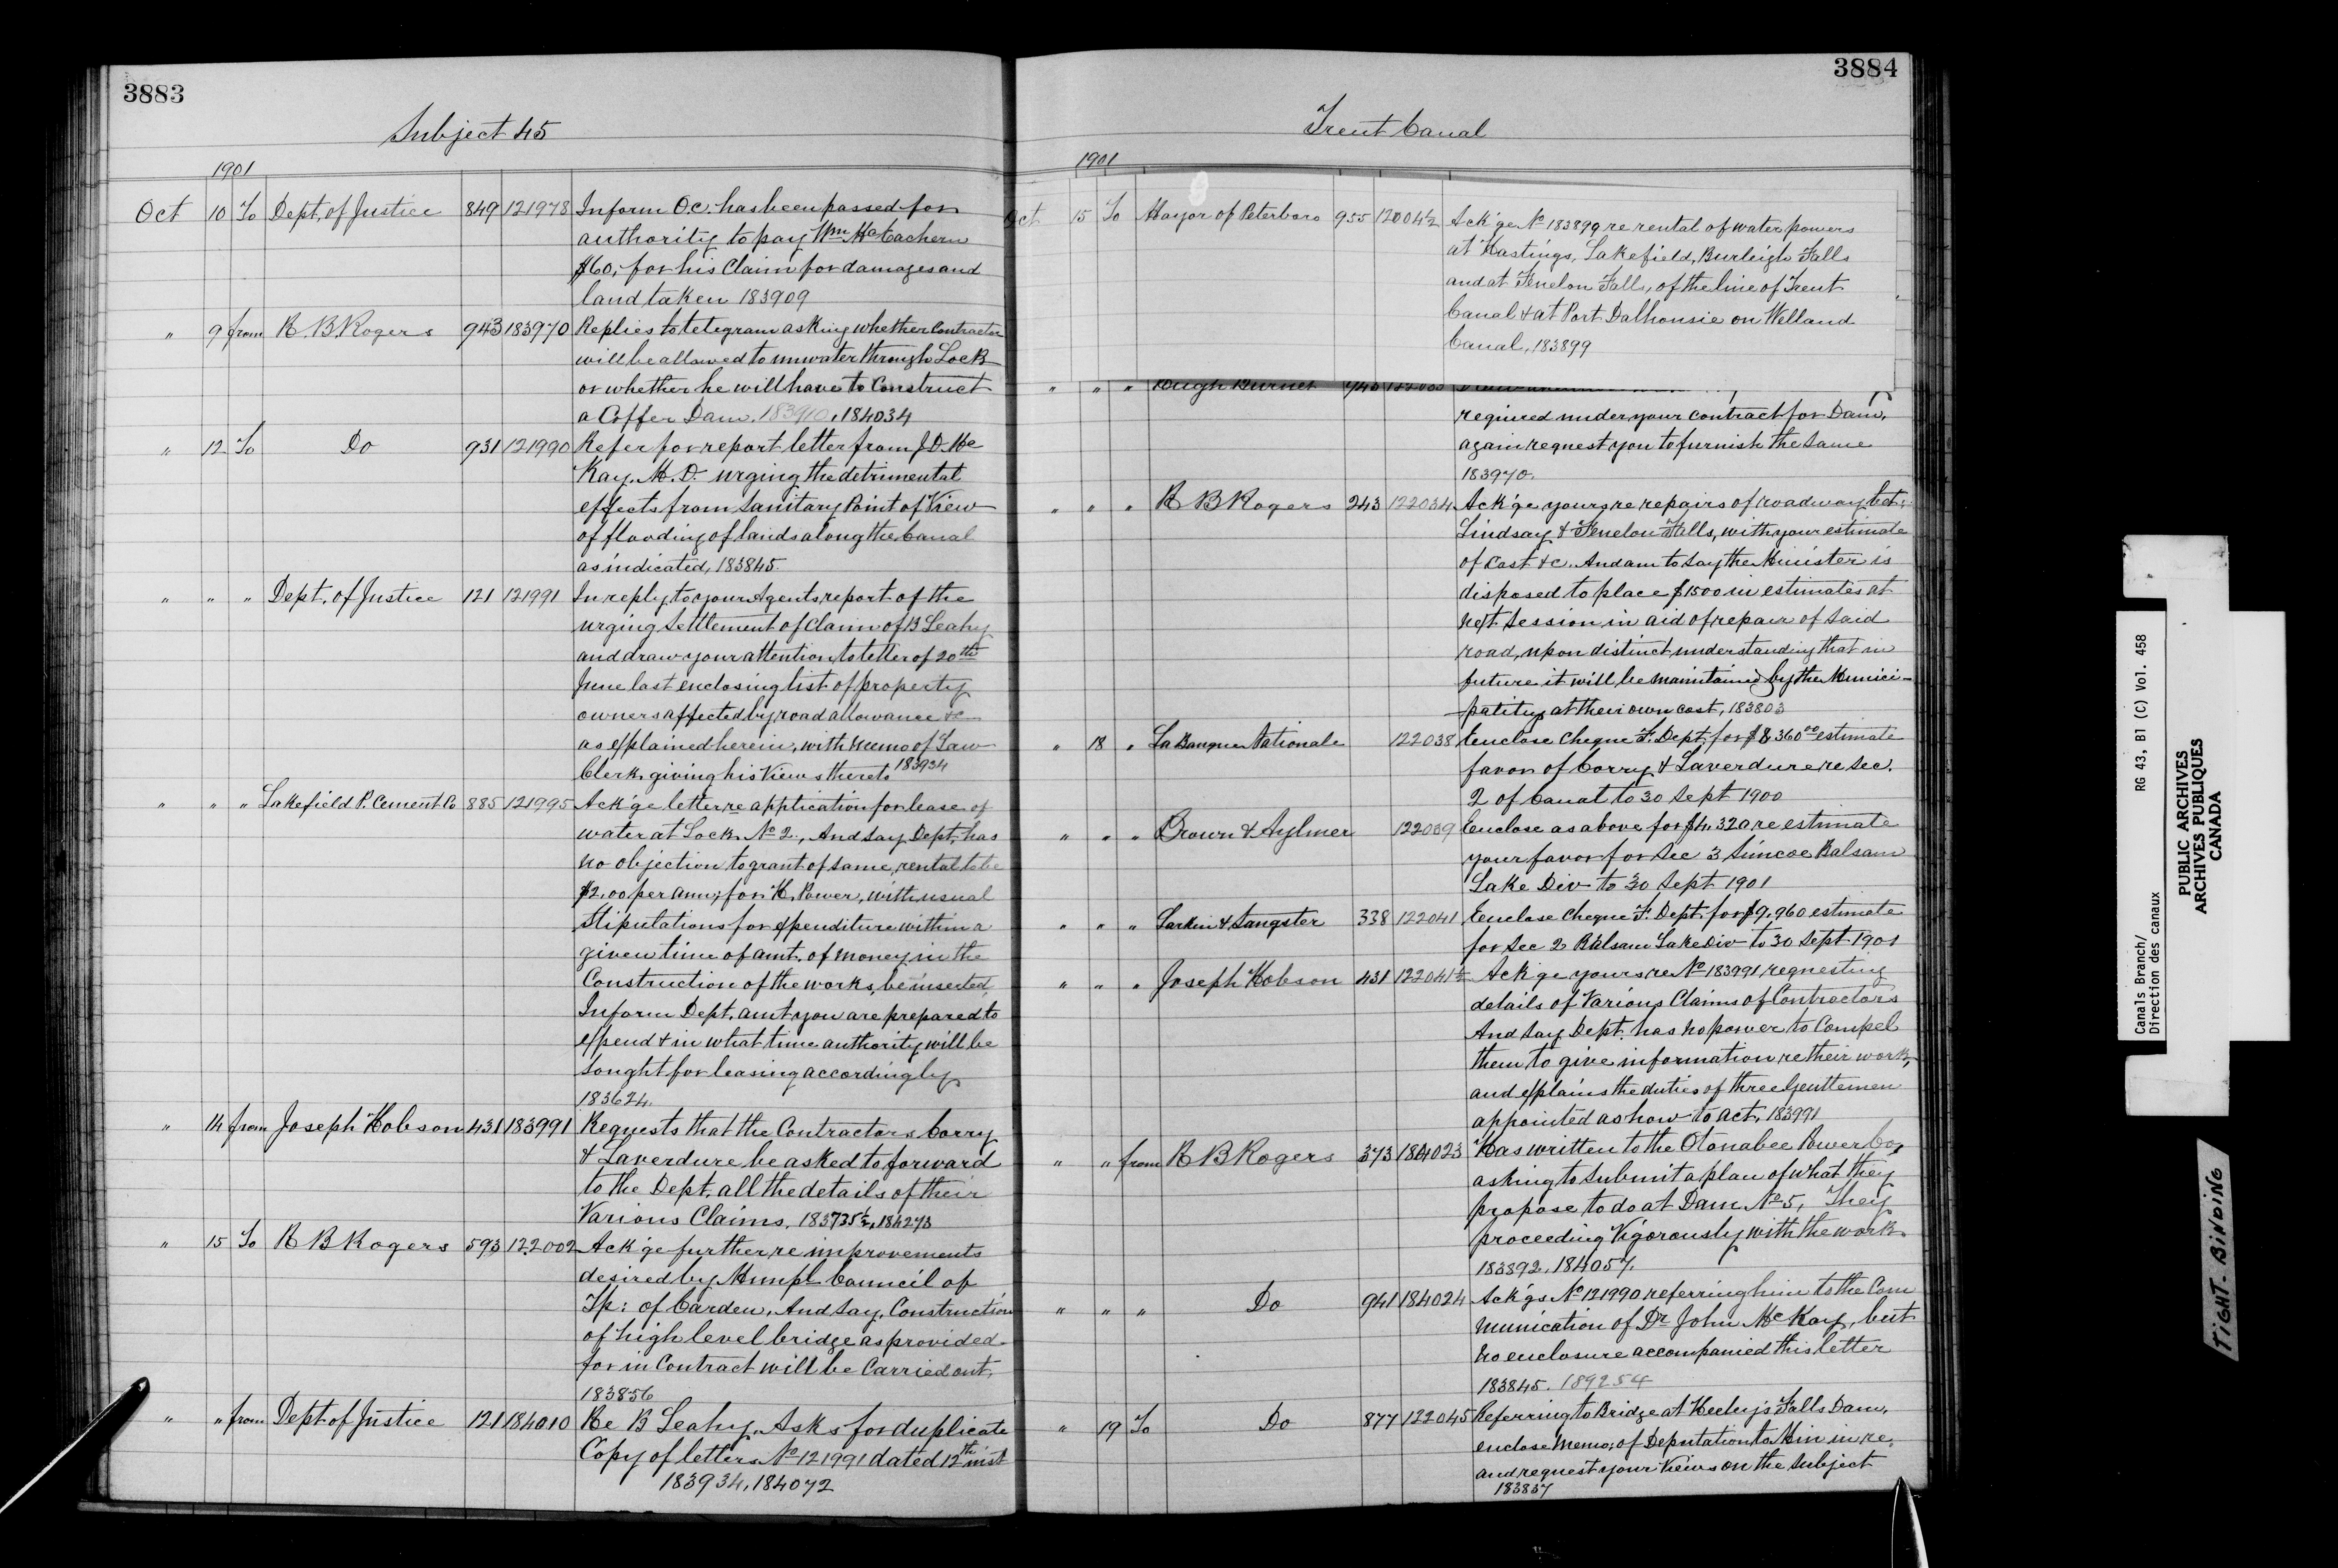 3883
Subject 45
1901
Oct 10 To Dept. of Justice 849 121978 Inform O.C. has been passed for
authority to pay Wm McEachern
$60, for his Claim for damages and
land taken 183909
" 9 from R. B Rogers 943 183970 Replies to telegram asking whether Contractor
will be allowed to unwater through Lock
or whether he will have to Construct
a Coffer Dam. 183910, 184034
" 12 To Do 931 121990 Refer for report letter from J. D. Mc
Kay. M. D. urging the detrimental
effects from Sanitary Point of View
of flooding of lands along the Canal
as indicated, 183845.
" " " Dept. of Justice 121 121991 In reply to your Agents report of the
urging Settlement of Claim of B Leahy
and draw your attention to letter of 20th
June last enclosing list of property
owners affected by road allowance &c
as explained herein, with memo of Law
Clerk giving his Views thereto 183934
" " " Lakefield P. Cement Co 885 121995 Ack'ge letter re application for lease of
water at Lock No 2., And say Dept. has
no objection to grant of same, rental to be
$2.00 per ann; for H. Power, with usual
Stipulations for expenditure within a
given time of amt. of money in the
Construction of the works, be inserted,
Inform Dept. amt you are prepared to
expend & in what time authority will be
sought for leasing accordingly
183624.
" 14 from Joseph Hobson 431 183991 Requests that the Contractors Corry
& Laverdure be asked to forward
to the Dept. all the details of their
Various Claims. 183735½, 184273
" 15 To R B Rogers 593 122002 Ack'ge further, re improvements
desired by Munpl Council of
Tp: of Carden, And say, Construction
of high level bridge as provided
for in Contract will be Carried out.
183856
" " from Dept of Justice 121 184010 Re B Leahy. Asks for duplicate
Copy of letters No 121991 dated 12th inst
183934, 184072
3884
Trent Canal
1901
Oct 15 To Mayor of Peterboro 955 12004½ Ack'ge No 183899 re rental of water powers
at Hastings, Lakefield, Burleigh Falls
and at Fenelon Falls, of the line of Trent
Canal & at Port Dalhousie on Welland
Canal, 183899
" " " Hugh Burnet 943
required under your contract for Dam,
again request you to furnish the same
183970.
" " " R B Rogers 243 122034 Ack'ge yours re repairs of roadway bet:
Lindsay & Fenelon Falls, with your estimate
of Cost &c. And am to say the Minister is
disposed to place $1500 in estimates at
next Session in aid of repair of said
road, upon distinct understanding that in
future it will be maintained by the Munici-
pality at their own cost, 183803
" 18 " La Banque Nationale 122038 Enclose Cheque F. Dept. for $8360.00 estimate
favor of Corry & Laverdure re Sec.
2 of Canal to 30 Sept 1900
" " " Brown & Aylmer 122039 Enclose as above for $4,320 re estimate
your favor for Sec 3 Simcoe Balsam
Lake Div to 30 Sept 1901
" " " Larkin & Sangster 338 122041 Enclose Cheque F. Dept. for $9,960 estimate
for Sec 2 Balsam Lake Div to 30 Sept 1901
" " " Joseph Hobson 431 122041½ Ack'ge yours re No 183991 requesting
details of Various Claims of Contractors
And say Dept. has no power to Compel
them to give information, re their work,
and explains the duties of three Gentlemen
appointed as how to act. 183991
" " from R B Rogers 373 184023 Has written to the Otonabee Power Co,
asking to submit a plan of what they
propose to do at Dam No 5, They
proceeding Vigorously with the work
183892. 184057.
" " " Do 941 184024 Ack'gs No 121990 referring him to the Com
munication of Dr John McKay, but
no enclosure accompanied this letter
183845. 189254
" 19 To Do 877 122045 Referring to Bridge at Heely's Falls Dam,
enclose Memo; of Deputation to Min in re,
and request your Views on the Subject
183837
Canals Branch/ RG 43, B1 (C) Vol. 458
Direction des canaux
PUBLIC ARCHIVES
ARCHIVES PUBLIQUES
CANADA
TIGHT BINDING